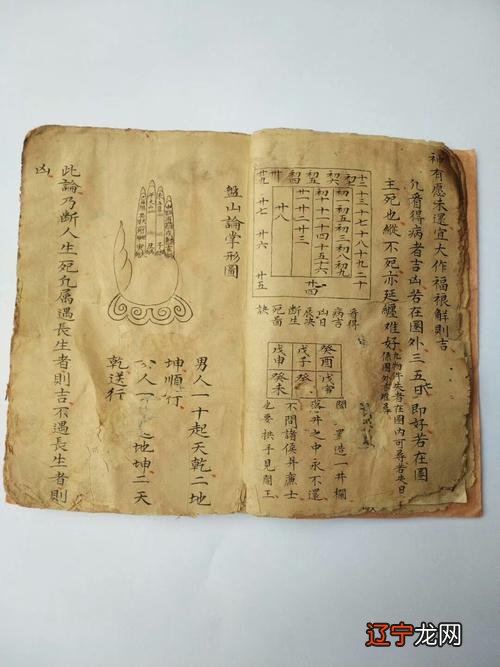 神有愿未還宜大作福根解則吉
凢看得病者吉凶若在圈外三五日即好若在圈
主死也縱不死亦延纏难好
十二十三十七十八十九二十
初一初五初三初八初九
初十十一十四十五十六
廿一廿二廿三
廿八
廿九
廿七
廿六
廿五
廿四
看得
病吉
凶日
辰决
断生
死啚
訣
癸酉
戊寅
戊子
癸
戊申
癸未
置造一井欄
落井之中永不還
不問諸侯并庶士
也要拱手見閻王
盤山論掌形圖
男人一十起天乾二地
坤順行
人一
之地坤二天
乾送行
此論乃断人生死凢属遇長生者則吉不遇長生者則
凶
辽宁龙网